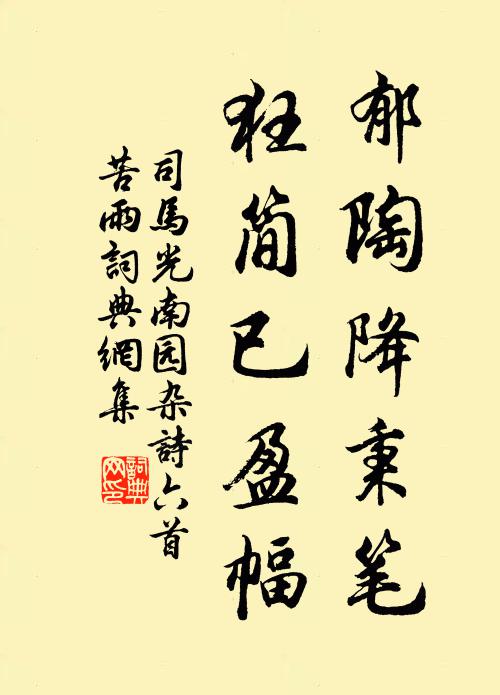 郁陶降秉笔
狂简已盈幅
司馬光南园杂詩六首
苦雨詞典網集
詞典网印